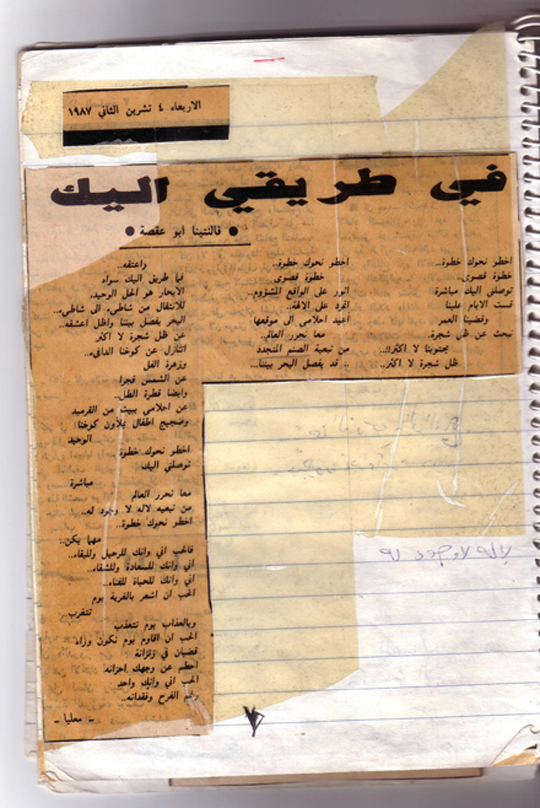 الاربعاء ٤ تشرين الثاني ١٩٨٧
في طريقي اليك
● فالنتينا ابو عقصة ●
اخطو نحوك خطوة..
خطوة قصوى..
توصلني اليك مباشرة
قست الايام علينا
وقضينا العمر
نبحث عن ظل شجرة.
يحتوينا لا اكثر!!..
ظل شجرة لا اكثر..
اخطو نحوك خطوة..
خطوة قصوى..
اثور على الواقع المشؤوم..
اتمرد على الآلهة..
اعيد احلامي الى موقعها
معا نحرر العالم..
من تبعية الصنم المتجدد
.. قد يفصل البحر بيننا...
واعتقه..
فيا طريق اليك سواه
الابحار هو الحل الوحيد،
للانتقال من شاطىء الى شاطىء..
البحر يفصل بيننا واظل اعشقه..
عن ظل شجرة لا اكثر
اتنازل عن كوخنا الدافىء..
وزهرة الفل
عن الشمس فجرا
وايضا قطرة الطل..
عن احلامي ببيت من القرميد
وضجيج اطفال يملأون كوخنا
الوحيد
اخطو نحوك خطوة
توصلني اليك
مباشرة
معا نحرر العالم
من تبعيه لاله لا وجود له..
اخطو نحوك خطوة..
مهما يكن..
فالحب اني وانك للرحيل وللبقاء..
اني وانك للسعادة وللشقاء..
اني وانك للحياة للفناء..
الحب ان اشعر بالغربة يوم
تتغرب..
وبالعذاب يوم تتعذب
الحب ان اقاوم يوم تكون وراء
قضبان في زنزانة
احطم عن وجهك احزانه
الحب اني وانك واحد
رغم الفرح وفقدانه..
- معليا -
لاله لا وجود له